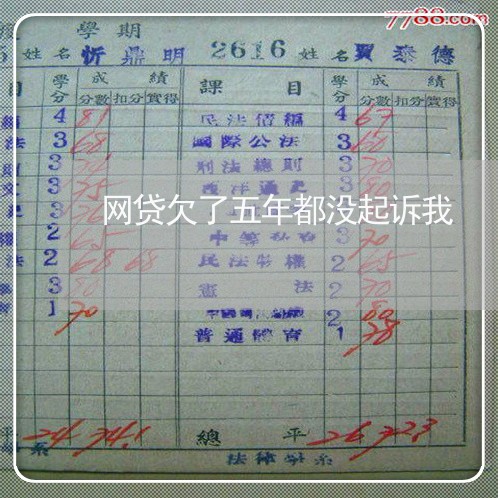 7788.com
學期
姓名 忻鼎明 2616 姓名 賈泰德
目 學分 成績 課目 學分 成績
分數 扣分 實得 分數 扣分 實得
4 81 民法債編 4 67
法 3 68 國際公法 3 60
3 刑法總則 3 70
3 75 西洋通史 3 80
3
網贷欠了五年都没起诉我
2 65 3 70
法 2 68 68 民法物權 2 65
3 80 憲法 2 70
1 70 2 80
普通體育 1 78
平 24 74.1 總平 26 72.3
系 法律學系